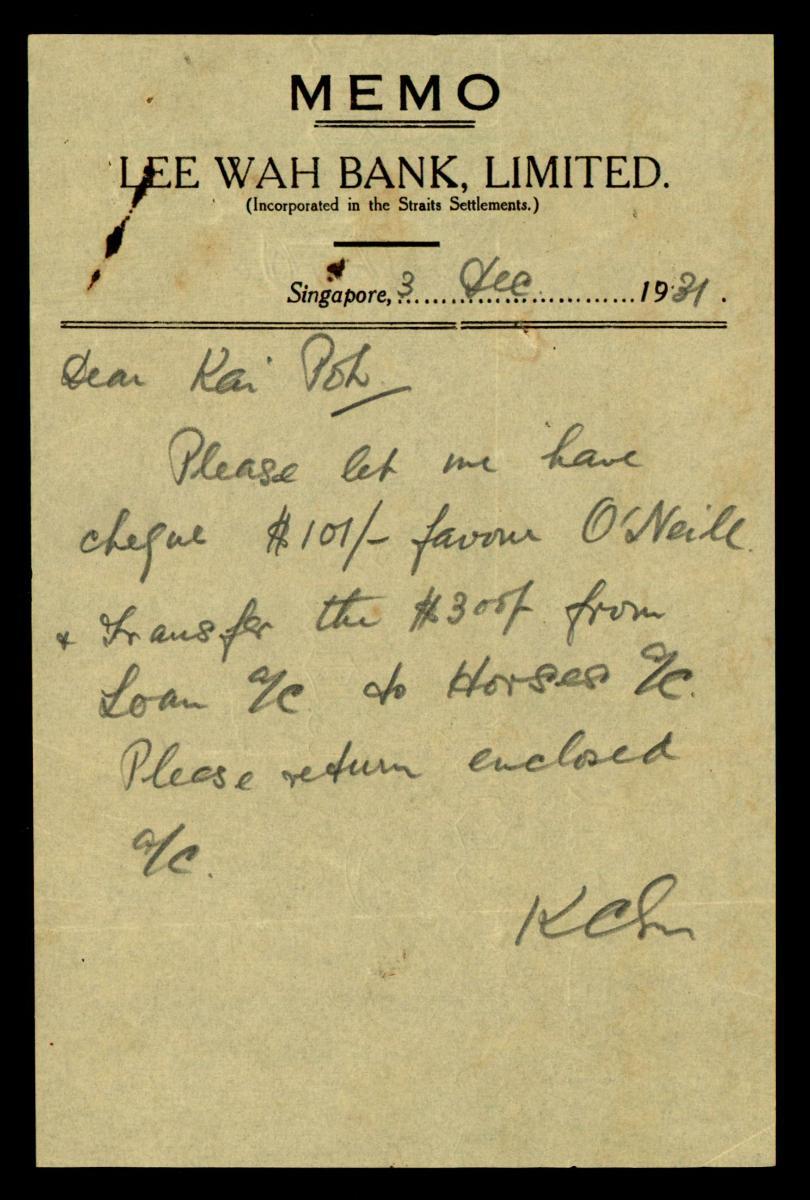 MEMO
LEE WAH BANK, LIMITED.
(Incorporated in the Straits Settlements.)
Singapore, 3 Dec 1931.
Dear Kai Poh
Please let me have
cheque $101/- favour O'Neill
& Transfer the $300/- from
Loan a/c to Horses a/c.
Please return enclosed
a/c.